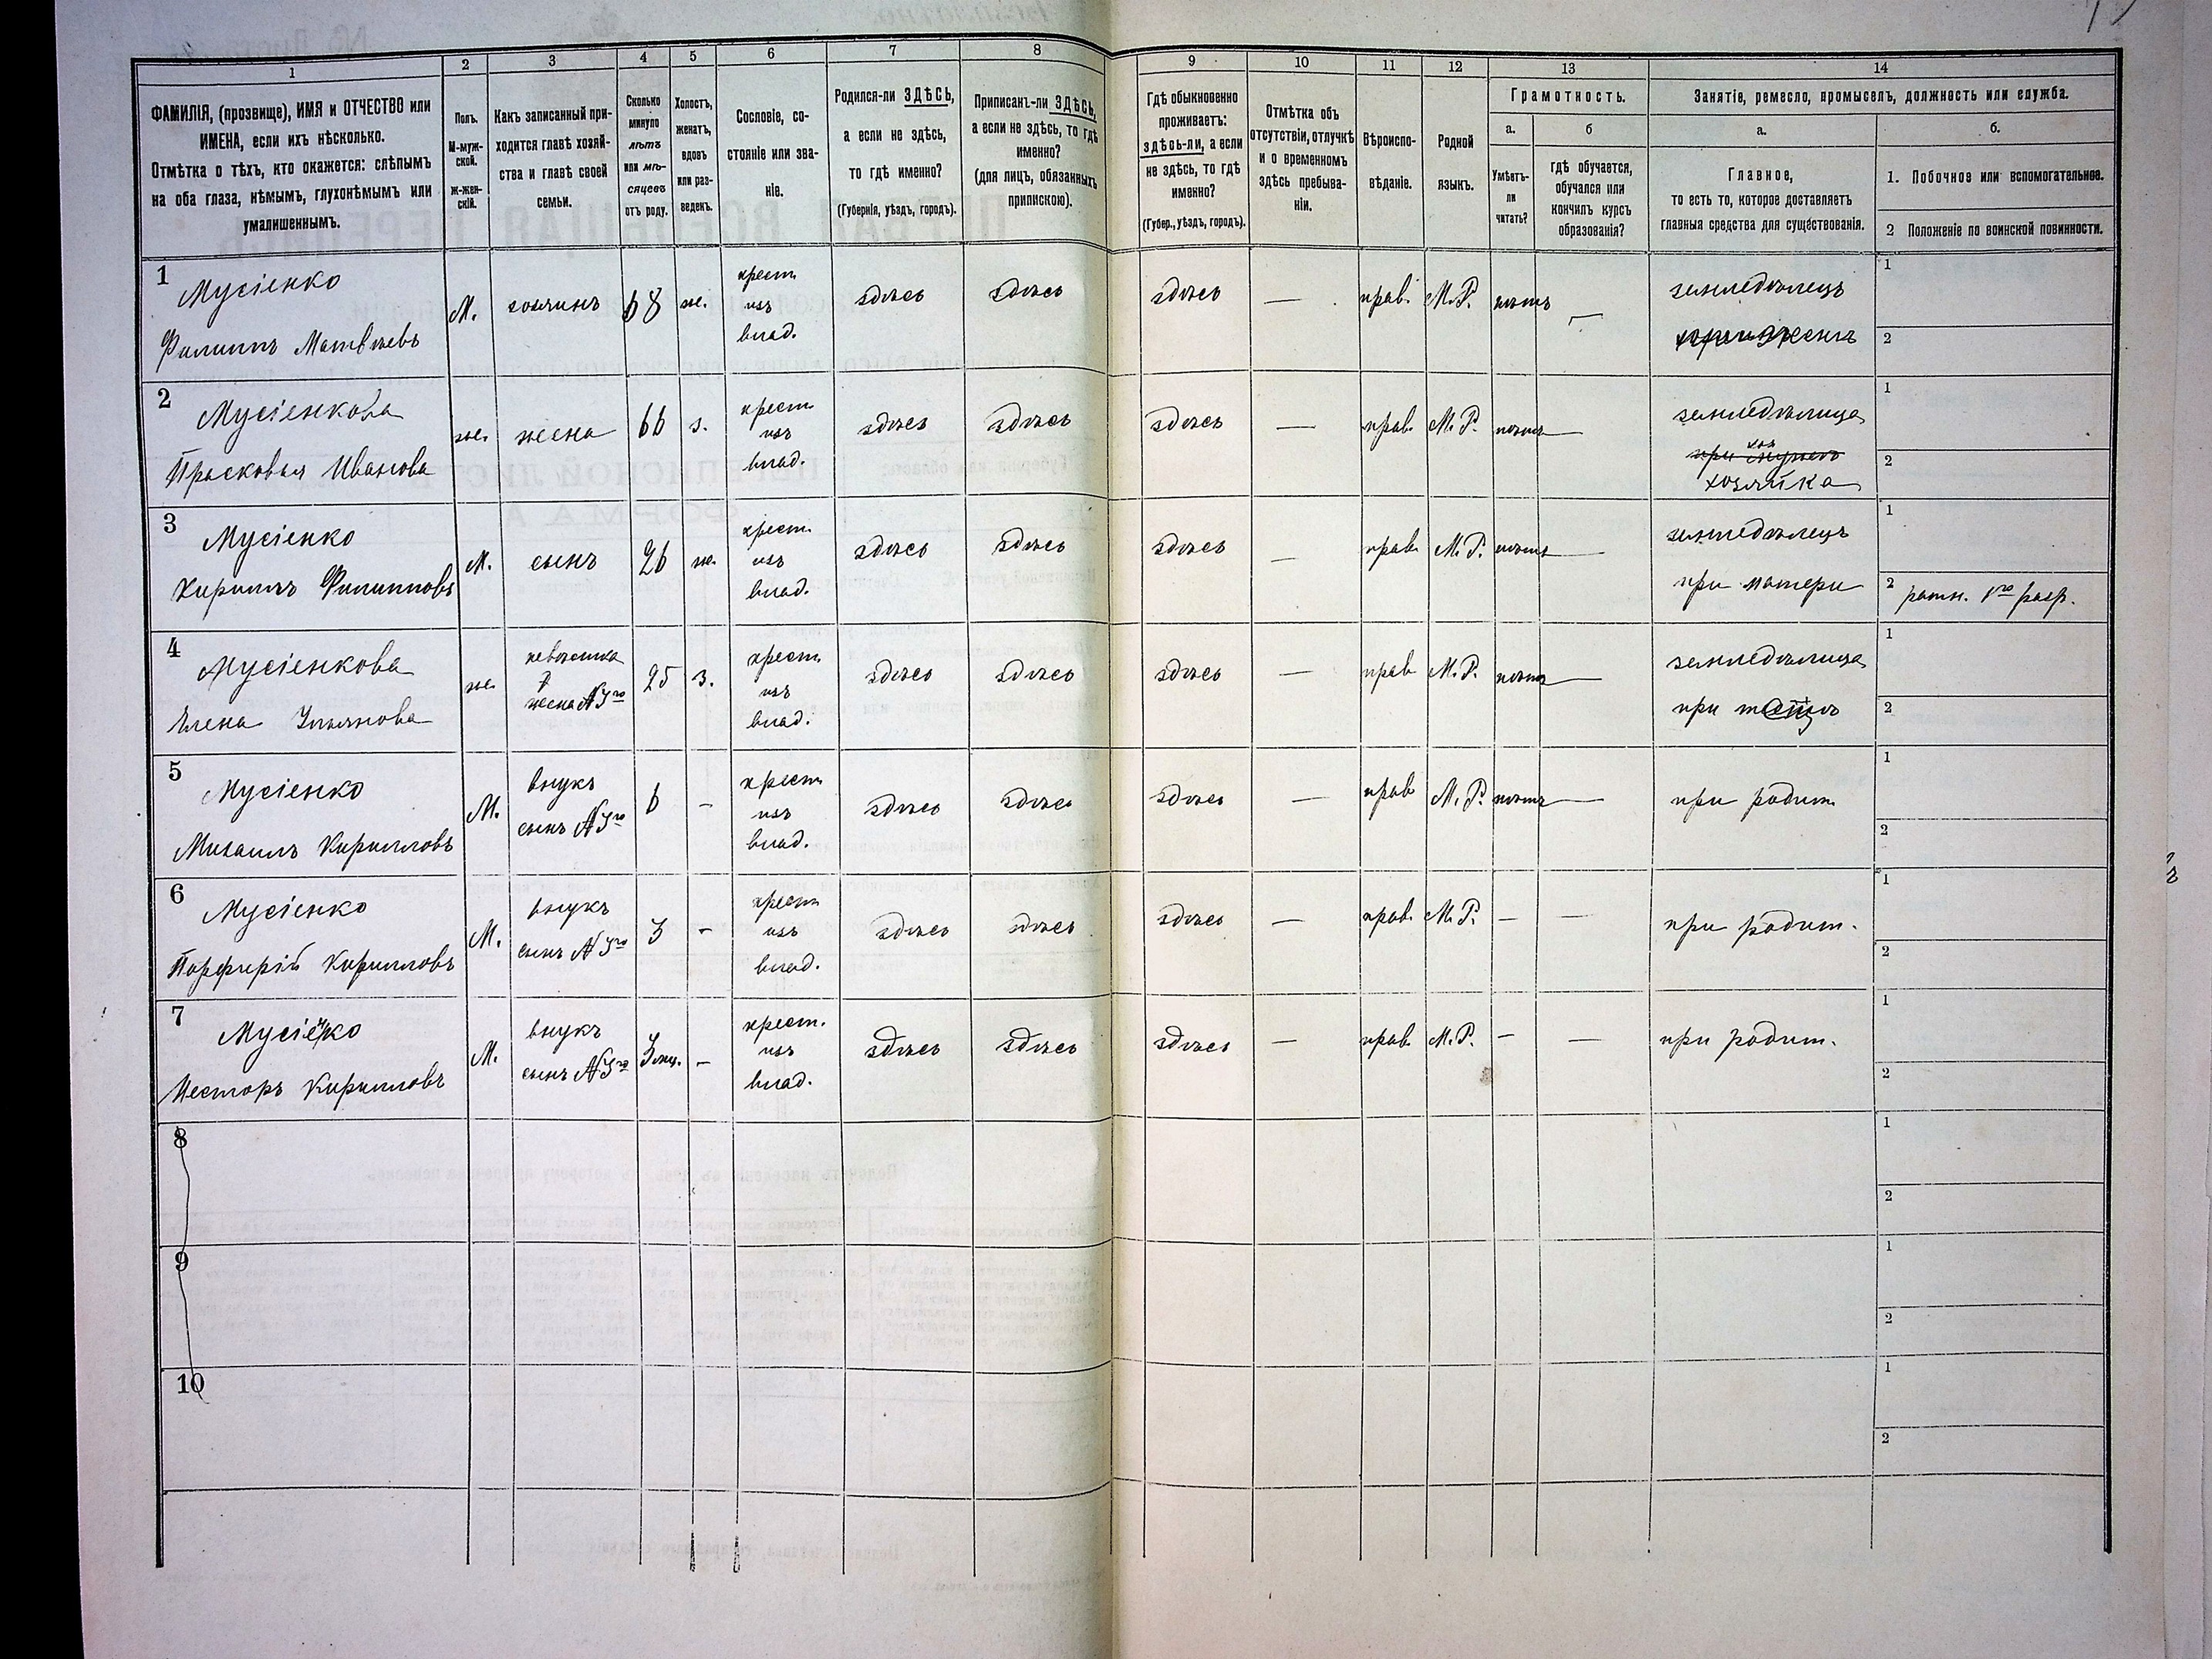 1
2
3
4
5
6
7
8
9
10
11
12
13
14
ФАМИЛІЯ, (прозвище), ИМЯ и ОТЧЕСТВО или
ИМЕНА, если ихъ нѣсколько.
Отмѣтка о тѣхъ, кто окажется: слѣпымъ
на оба глаза, нѣмымъ, глухонѣмымъ или
умалишеннымъ.
Полъ.
М-муж-
ской.
Ж-жен-
скій.
Какъ записанный при-
ходится главѣ хозяй-
ства и главѣ своей
семьи.
Сколько
минуло
лѣтъ
или мѣ-
сяцевъ
отъ роду.
Холостъ,
женатъ,
вдовъ
или раз-
веденъ.
Сословіе, со-
стояніе или зва-
ніе.
Родился-ли ЗДѢСЬ,
а если не здѣсь,
то гдѣ именно?
(Губернія, уѣздъ, городъ).
Приписанъ-ли ЗДѢСЬ,
а если не здѣсь, то гдѣ
именно?
(для лицъ, обязанныхъ
припискою).
Гдѣ обыкновенно
проживаетъ:
здѣсь-ли, а если
не здѣсь, то гдѣ
именно?
(Губер., уѣздъ, городъ).
Отмѣтка объ
отсутствіи, отлучкѣ
и о временномъ
здѣсь пребыва-
ніи.
Вѣроиспо-
вѣданіе.
Родной
языкъ.
Грамотность.
а.
Умѣетъ-
ли
читать?
б
гдѣ обучается,
обучался или
кончилъ курсъ
образованія?
Занятіе, ремесло, промыселъ, должность или служба.
а.
Главное,
то есть то, которое доставляетъ
главныя средства для существованія.
б.
1. Побочное или вспомогательное.
2 Положеніе по воинской повинности.
1
Мусіенко
Филиппъ Матвѣевъ
М.
хозяинъ
68
ж.
крест.
изъ
влад.
здѣсь
здѣсь
здѣсь
—
прав.
М. Р.
нѣтъ
—
земледѣлецъ
1
2
2
Мусіенкова
Прасковья Иванова
ж.
жена
66
з.
крест.
изъ
влад.
здѣсь
здѣсь
здѣсь
—
прав.
М. Р.
нѣтъ
—
земледѣлица
при мужѣ
хозяйка
1
2
3
Мусіенко
Кириллъ Филипповъ
М.
сынъ
26
ж.
крест.
изъ
влад.
здѣсь
здѣсь
здѣсь
—
прав.
М. Р.
нѣтъ
—
земледѣлецъ
при матери
1
2 ратн. 1го разр.
4
Мусіенкова
Елена Ульянова
ж.
невѣстка
жена №3го
25
з.
крест.
изъ
влад.
здѣсь
здѣсь
здѣсь
—
прав.
М. Р.
нѣтъ
—
земледѣлица
при
1
2
5
Мусіенко
Михаилъ Кирилловъ
М.
внукъ
сынъ №3го
6
-
крест.
изъ
влад.
здѣсь
здѣсь
здѣсь
—
прав.
М. Р.
нѣтъ
—
при родит.
1
2
6
Мусіенко
Порфирій Кирилловъ
М.
внукъ
сынъ №3го
3
-
крест.
изъ
влад.
здѣсь
здѣсь
здѣсь
—
прав.
М. Р.
—
—
при родит.
1
2
7
Мусіенко
Несторъ Кирилловъ
М.
внукъ
сынъ №3го
3 мц.
-
крест.
изъ
влад.
здѣсь
здѣсь
здѣсь
—
прав.
М. Р.
—
—
при родит.
1
2
8
1
2
9
1
2
10
1
2